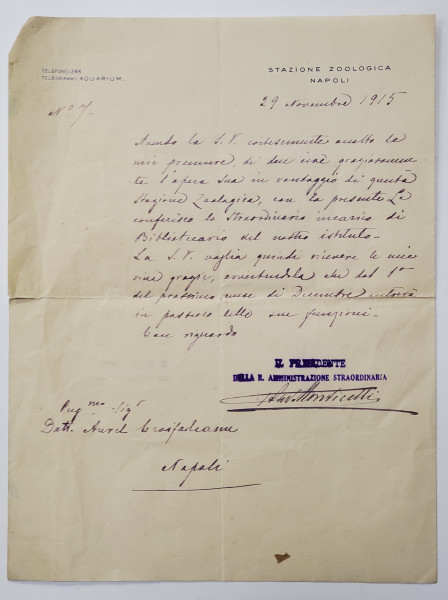 TELEFONO: 
TELEGRAMMI: AQUARIUM.
STAZIONE ZOOLOGICA
NAPOLI
29 Novembre 1915
N.º 7.
Avendo la S. V. cortesemente accolto le
mie premure, di dare cioè graziosamen
te l'opera Sua in vantaggio di questa
Stazione Zoologica, con la presente Le
conferisco lo Straordinario incarico di
Bibliotecario del nostro istituto.
La S. V. voglia quindi ricevere le mie
vive grazie, avvertendola che dal 1º
del prossimo mese di Dicembre entrerà
in possesso delle sue funzioni.
Con riguardo
IL PRESIDENTE
DELLA R. AMMINISTRAZIONE STRAORDINARIA
Monticelli
Preg.mo Sig.r
Dott. Aurel
Napoli